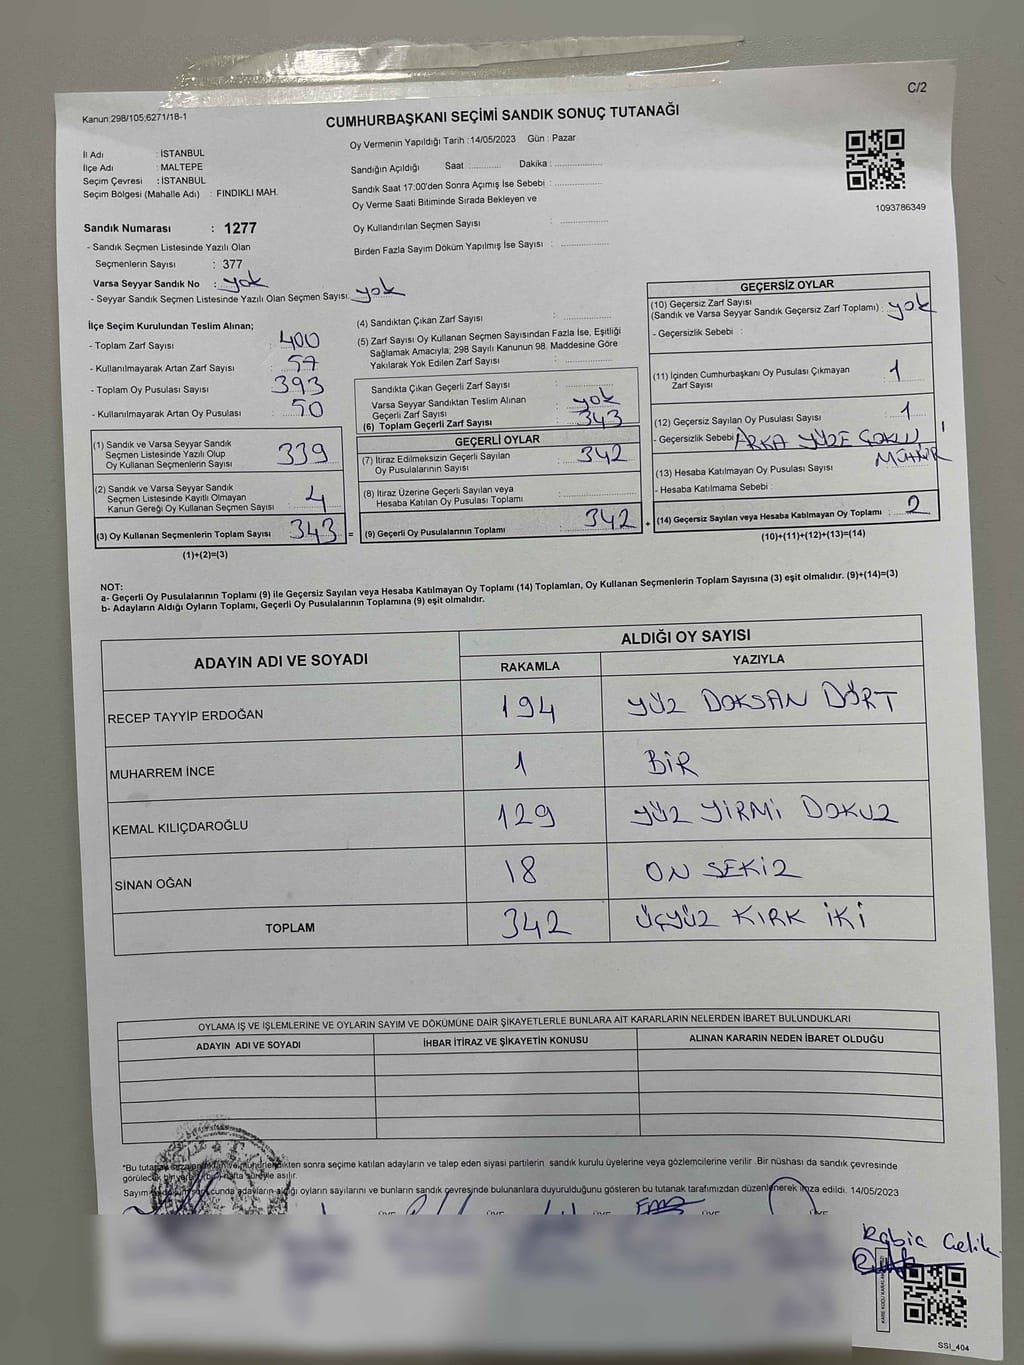 C/2
Kanun:298/105;6271/18-1
CUMHURBAŞKANI SEÇİMİ SANDIK SONUÇ TUTANAĞI
Oy Vermenin Yapıldığı Tarih :14/05/2023 Gün : Pazar
İl Adı : İSTANBUL
İlçe Adı : MALTEPE
Seçim Çevresi : İSTANBUL
Seçim Bölgesi (Mahalle Adı) : FINDIKLI MAH.
Sandığın Açıldığı Saat : Dakika :
Sandık Saat 17:00'den Sonra Açımış İse Sebebi :
Oy Verme Saati Bitiminde Sırada Bekleyen ve
Oy Kullandırılan Seçmen Sayısı :
Birden Fazla Sayım Döküm Yapılmış İse Sayısı :
1093786349
Sandık Numarası : 1277
- Sandık Seçmen Listesinde Yazılı Olan
Seçmenlerin Sayısı : 377
Varsa Seyyar Sandık No : yok
- Seyyar Sandık Seçmen Listesinde Yazılı Olan Seçmen Sayısı: yok
İlçe Seçim Kurulundan Teslim Alınan;
- Toplam Zarf Sayısı : 400
- Kullanılmayarak Artan Zarf Sayısı : 57
- Toplam Oy Pusulası Sayısı : 393
- Kullanılmayarak Artan Oy Pusulası : 50
(1) Sandık ve Varsa Seyyar Sandık
Seçmen Listesinde Yazılı Olup
Oy Kullanan Seçmenlerin Sayısı : 339
(2) Sandık ve Varsa Seyyar Sandık
Seçmen Listesinde Kayıtlı Olmayan
Kanun Gereği Oy Kullanan Seçmen Sayısı : 4
(3) Oy Kullanan Seçmenlerin Toplam Sayısı : 343 =
(1)+(2)=(3)
(4) Sandıktan Çıkan Zarf Sayısı :
(5) Zarf Sayısı Oy Kullanan Seçmen Sayısından Fazla İse, Eşitliği
Sağlamak Amacıyla; 298 Sayılı Kanunun 98. Maddesine Göre
Yakılarak Yok Edilen Zarf Sayısı :
Sandıkta Çıkan Geçerli Zarf Sayısı :
Varsa Seyyar Sandıktan Teslim Alınan
Geçerli Zarf Sayısı : yok
(6) Toplam Geçerli Zarf Sayısı : 343
GEÇERLİ OYLAR
(7) İtiraz Edilmeksizin Geçerli Sayılan
Oy Pusulalarının Sayısı : 342
(8) İtiraz Üzerine Geçerli Sayılan veya
Hesaba Katılan Oy Pusulası Toplamı :
(9) Geçerli Oy Pusulalarının Toplamı : 342 +
GEÇERSİZ OYLAR
(10) Geçersiz Zarf Sayısı
(Sandık ve Varsa Seyyar Sandık Geçersiz Zarf Toplamı) : yok
- Geçersizlik Sebebi :
(11) İçinden Cumhurbaşkanı Oy Pusulası Çıkmayan
Zarf Sayısı : 1
(12) Geçersiz Sayılan Oy Pusulası Sayısı : 1
- Geçersizlik Sebebi ARKA YÜZE
MÜHÜR
(13) Hesaba Katılmayan Oy Pusulası Sayısı
- Hesaba Katılmama Sebebi :
(14) Geçersiz Sayılan veya Hesaba Katılmayan Oy Toplamı : 2
(10)+(11)+(12)+(13)=(14)
NOT:
a- Geçerli Oy Pusulalarının Toplamı (9) ile Geçersiz Sayılan veya Hesaba Katılmayan Oy Toplamı (14) Toplamları, Oy Kullanan Seçmenlerin Toplam Sayısına (3) eşit olmalıdır. (9)+(14)=(3)
b- Adayların Aldığı Oyların Toplamı, Geçerli Oy Pusulalarının Toplamına (9) eşit olmalıdır.
ADAYIN ADI VE SOYADI
ALDIĞI OY SAYISI
RAKAMLA YAZIYLA
RECEP TAYYİP ERDOĞAN 194 YÜZ DOKSAN DÖRT
MUHARREM İNCE 1 BİR
KEMAL KILIÇDAROĞLU 129 YÜZ YİRMİ DOKUZ
SİNAN OĞAN 18 ON SEKİZ
TOPLAM 342 ÜÇYÜZ KIRK İKİ
OYLAMA İŞ VE İŞLEMLERİNE VE OYLARIN SAYIM VE DÖKÜMÜNE DAİR ŞİKAYETLERLE BUNLARA AİT KARARLARIN NELERDEN İBARET BULUNDUKLARI
ADAYIN ADI VE SOYADI İHBAR İTİRAZ VE ŞİKAYETİN KONUSU ALINAN KARARIN NEDEN İBARET OLDUĞU
*Bu tutanak sonra seçime katılan adayların ve talep eden siyasi partilerin sandık kurulu üyelerine veya gözlemcilerine verilir .Bir nüshası da sandık çevresinde
görülecek bir yere (bir) hafta süreyle asılır.
Sayım adayların aldığı oyların sayılarını ve bunların sandık çevresinde bulunanlara duyurulduğunu gösteren bu tutanak tarafımızdan düzenlenerek imza edildi. 14/05/2023
Rabia Çelik
SSI_404